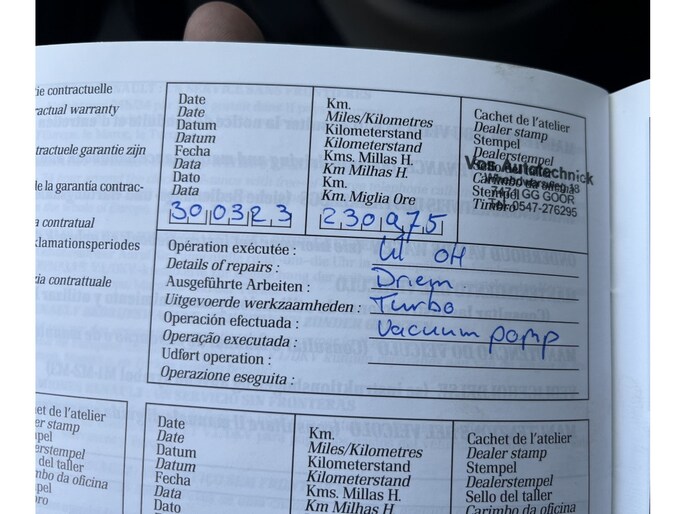 ie contractuelle
ractual warranty
tractuele garantie zijn
de la garantía contrac-
a contratual
klamationsperiodes
cia contrattuale
Date
Date
Datum
Datum
Fecha
Data
Dato
Data
300323
Km.
Miles/Kilometres
Kilometerstand
Kilometerstand
Kms. Millas H.
Km Milhas H.
Km.
Km. Miglia Ore
230975
Cachet de l'atelier
Dealer stamp
Stempel
Dealerstempel
Vos Autotechniek
Carimbo da oficina
7471 GG GOOR
Stempel
Tel. 0547-276295
Timbro
Opération exécutée :
Details of repairs :
Ausgeführte Arbeiten :
Uitgevoerde werkzaamheden :
Operación efectuada :
Operação executada :
Udført operation :
Operazione eseguita :
OH
Driem.
Turbo
Vacuum pomp
het de l'atelier
er stamp
npel
erstempel
del taller
mbo da oficina
npel
bro
Date
Date
Datum
Datum
Fecha
Data
Dato
Km.
Miles/Kilometres
Kilometerstand
Kilometerstand
Kms. Millas H.
Km Milhas H.
Cachet de l'atelier
Dealer stamp
Stempel
Dealerstempel
Sello del taller
Carimbo da oficina